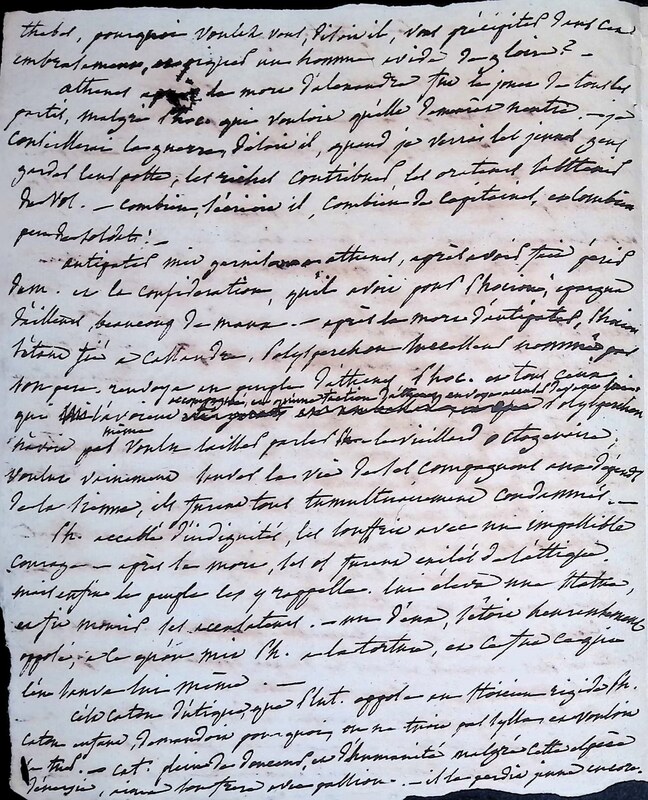 thebes, pourquoi voulez vous, disoit il, vous précipiter dans cet
embrasement, et piquer un homme avide de gloire? -
athenes après la mort d'alexandre fut le jouet de tous les
partis, malgré Phoc. qui vouloit qu'elle demeurât neutre. - je
conseillerai la guerre, disoit il, quand je verrai les jeunes gens
garder leur poste, les riches contribuer les orateurs s'abstenir
de vol. - combien, s'écrioit il, combien de capitaines, et combien
peu de soldats! -
antipater mit garnison a athenes, après avoir fait périr
dem. et la considération, qu'il avoit pour Phocion, épargna
d'ailleurs beaucoup de maux. - après la mort d'antipater, Phocion
s'étant fié a Cassandre, Polysperchon successeur nommé par
son pere, renvoya au peuple d'athenes Phoc. et tous ceux
qui l'avoient accompagné, Polysperchon
n'avoit pas même voulu laisser parler le vieillard octogenaire,
voulut vainement sauver la vie de ses compagnons aux dépens
de la sienne, ils furent tous tumultuairement condamnés. -
Ph. accablé d'indignités, les souffrit avec un impassible
courage - après la mort, ses os furent exilés de l'attique
mais enfin le peuple les y rappella. lui éleva une statue,
et fit mourir ses accusateurs. - un d'eux, s'étoit heureusement
opposé, a ce qu'on mit Ph. a la torture, et ce fut ce que
l'on trouva lui même -
C'est caton d'utique, que Plut. oppose au rigide Ph.
caton enfant, demandoit pourquoi, on ne tuoit pas sylla, et vouloit
le tuer. - cat. plein de douceur, et d'humanité malgré cette espèce
d'énergie, aima son frere avec passion. - il le perdit jeune encore.